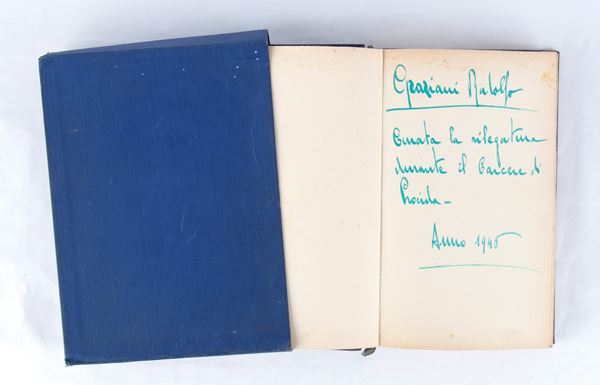 Graziani Rodolfo
Curata la rilegatura
durante il Carcere di
Procida -
Anno 1946